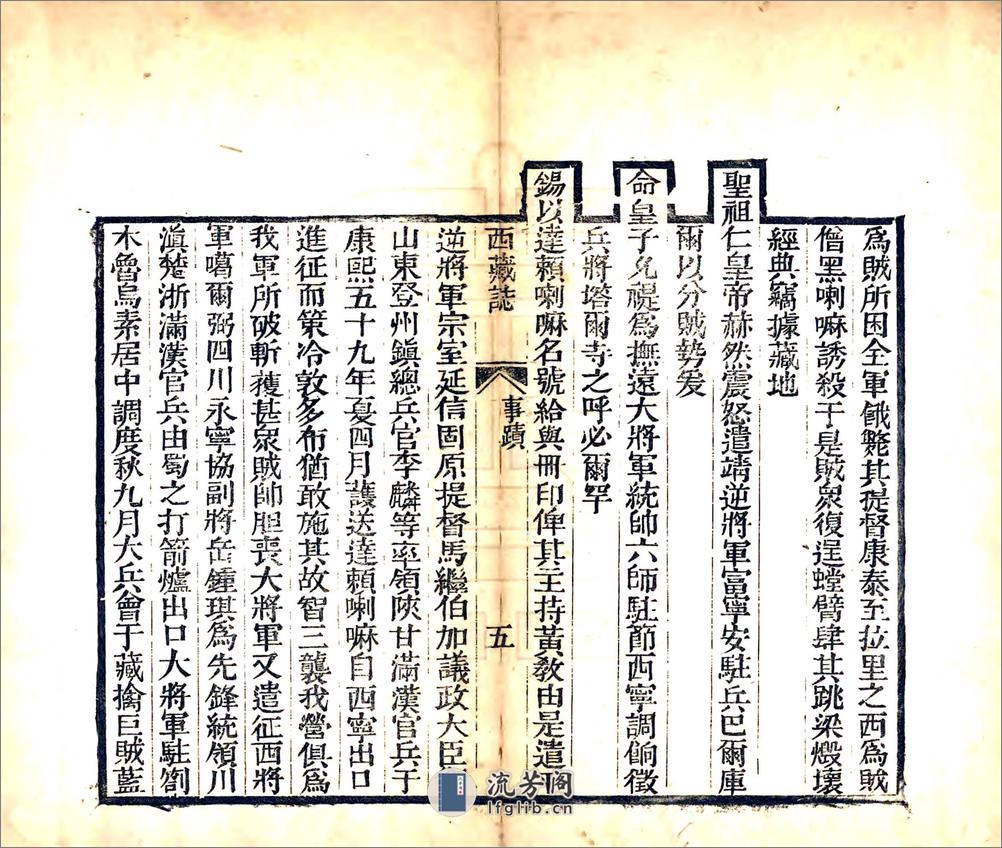 為賊所困全軍餓斃其提督康泰至拉里之西為賊
僧黑喇嘛誘殺于是賊衆復逞螳臂肆其跳梁燬壞
經典竊據藏地
聖祖仁皇帝赫然震怒遣靖逆將軍富寧安駐兵巴爾庫
爾以分賊勢爰
命皇子允禵為撫遠大將軍統帥六師駐節西寧調餉徵
兵將塔爾寺之呼必爾罕
錫以達賴喇嘛名號給與冊印俾其主持黃教由是遣
西藏誌
事蹟
五
逆將軍宗室延信固原提督馬繼伯加議政大臣
山東登州鎮總兵官李麟等率領陝甘滿漢官兵于
康熙五十九年夏四月護送達賴喇嘛自西寧出口
進征而策冷敦多布猶敢施其故智三襲我營俱為
我軍所破斬獲甚衆賊帥胆喪大將軍又遣征西將
軍噶爾弼四川永寧協副將岳鍾琪為先鋒統領川
滇楚浙滿漢官兵由蜀之打箭爐出口大將軍駐劄
木魯烏素居中調度秋九月大兵會于藏擒巨賊藍
流芳阁
lfglib.cn